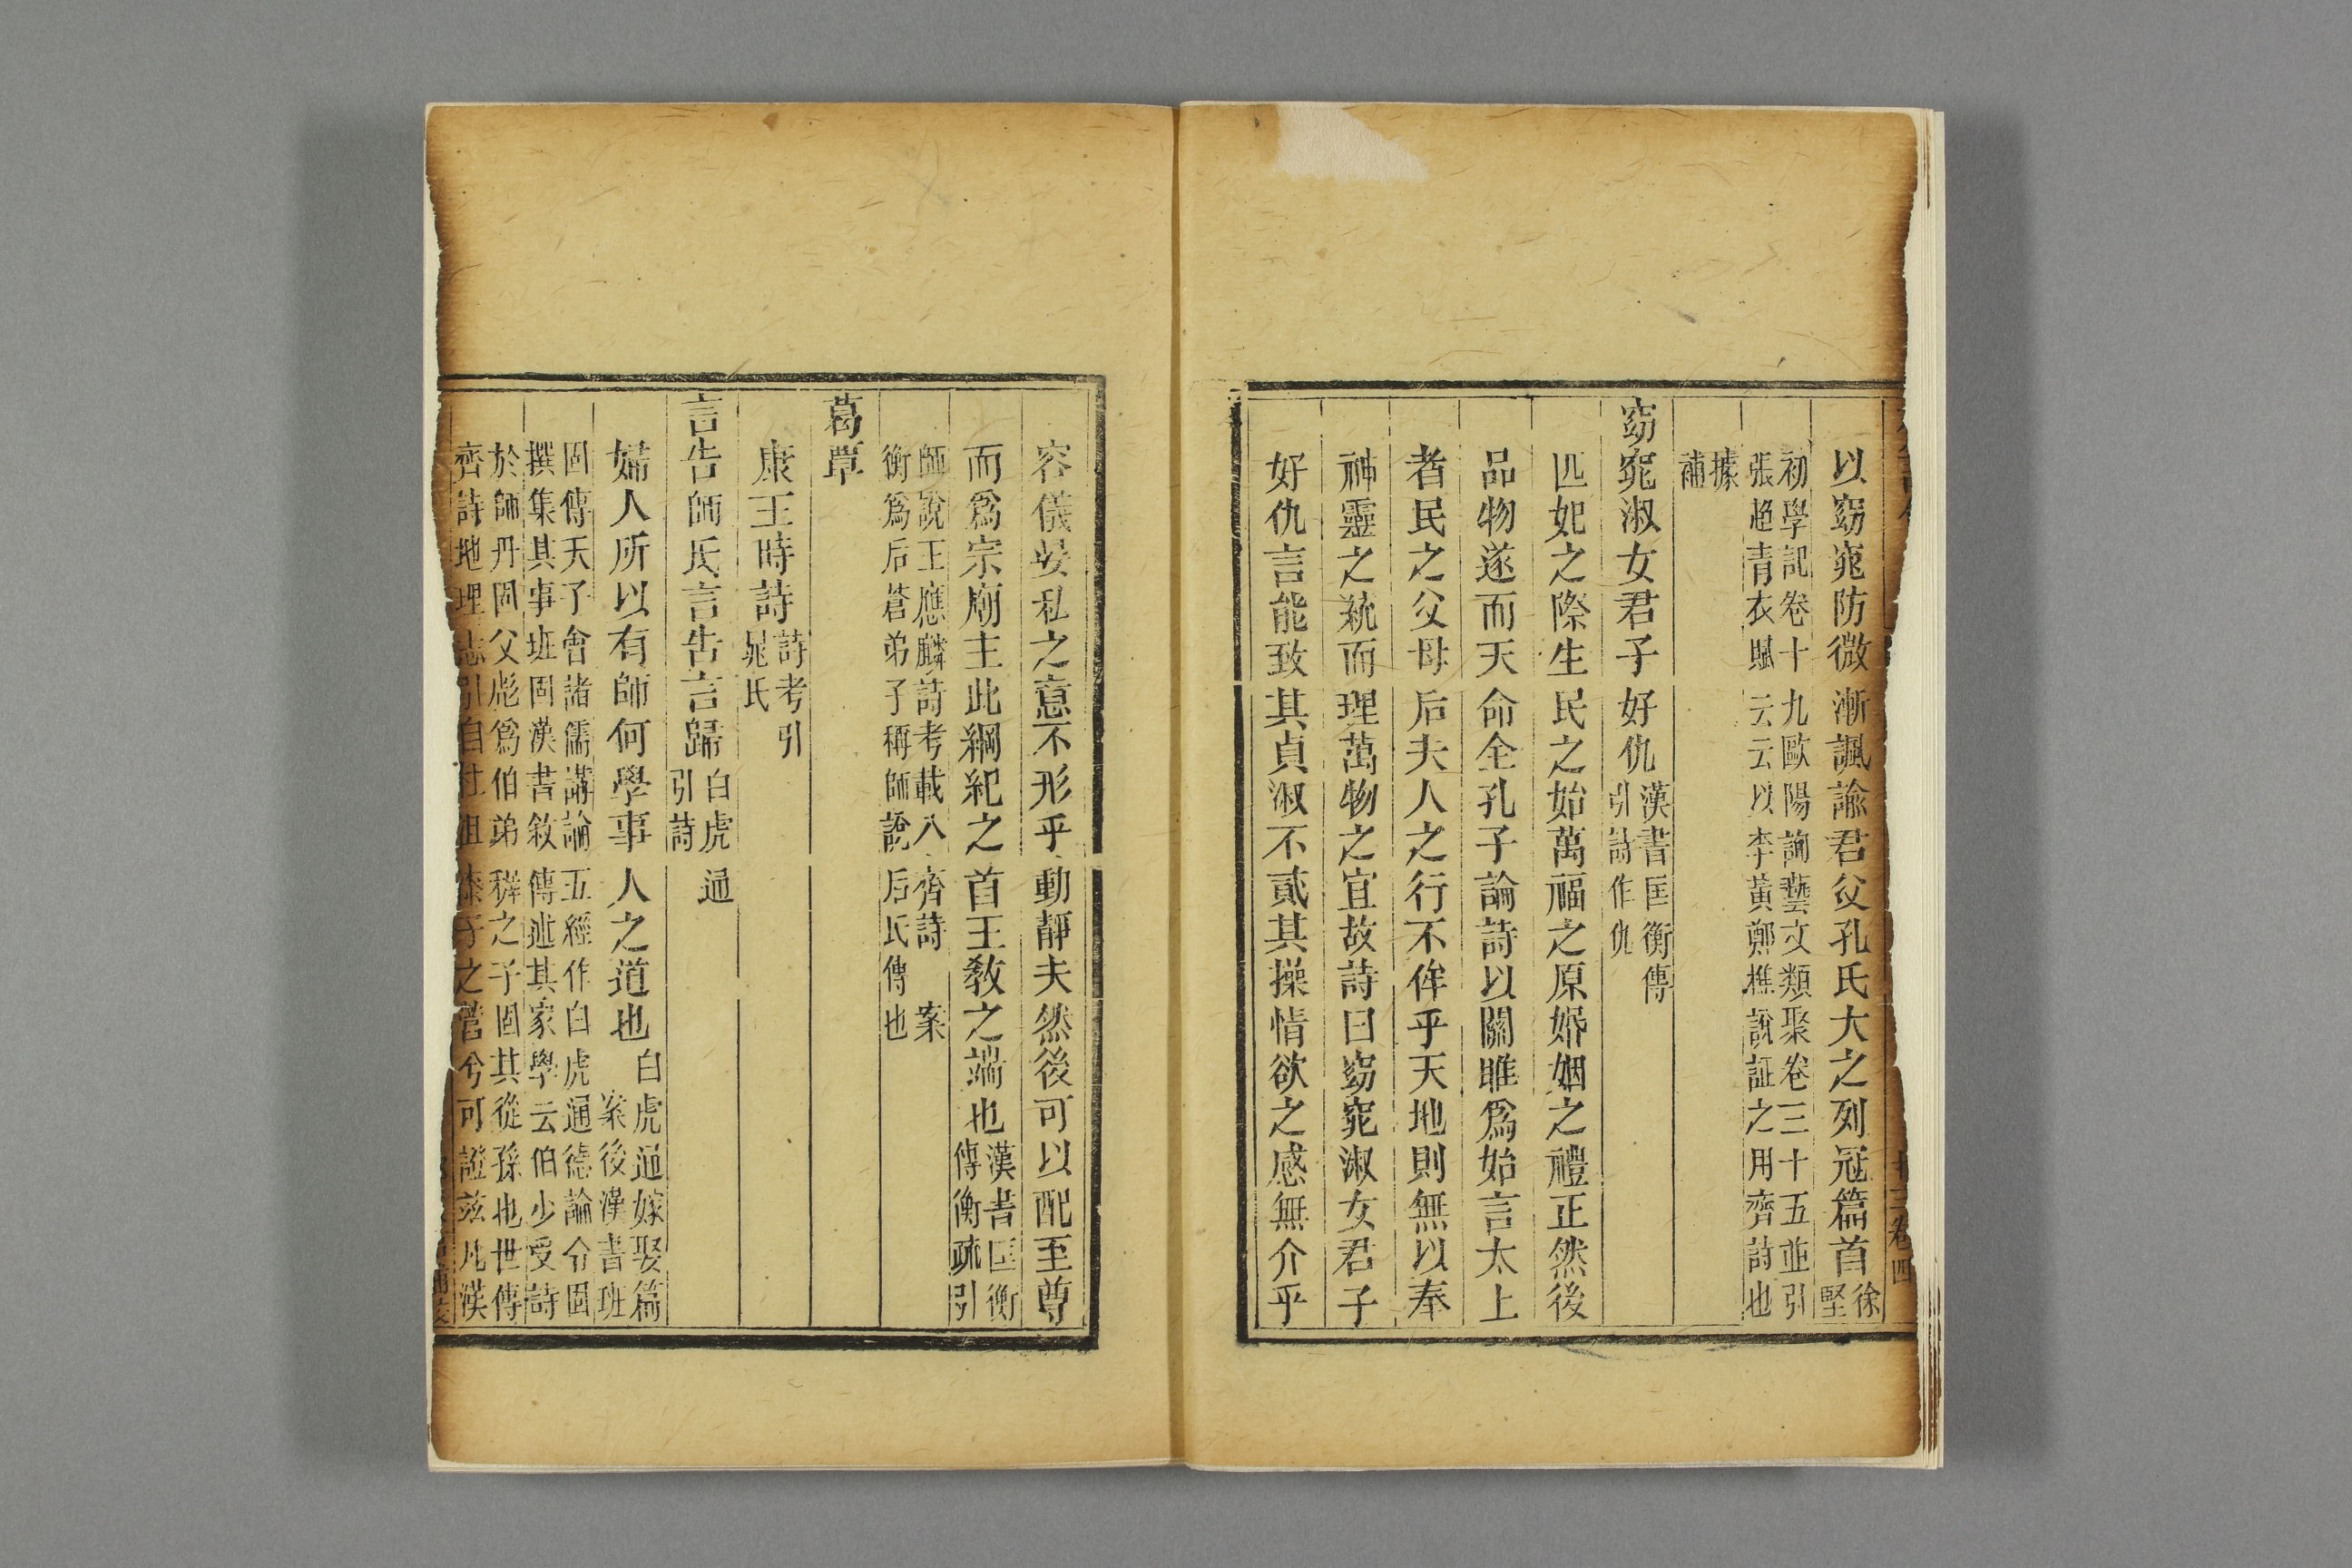 以窈窕防微漸諷諭君父孔氏大之列冠篇首徐堅
初學記卷十九歐陽詢藝文類聚卷三十五並引
張超青衣賦云云以李黃鄭樵說証之用齊詩也
據
補
窈窕淑女君子好仇漢書匡衡傳
引詩作仇
匹妃之際生民之始萬福之原婚姻之禮正然後
品物遂而天命全孔子論詩以關雎爲始言太上
者民之父母后夫人之行不侔乎天地則無以奉
神靈之統而理萬物之宜故詩曰窈窕淑女君子
好仇言能致其貞淑不貳其操情欲之感無介乎
卷四
容儀晏私之意不形乎動靜夫然後可以配至尊
而爲宗廟主此綱紀之首王敎之端也漢書匡衡
傳衡疏引
師說王應麟詩考載入齊詩案
衡爲后蒼弟子稱師說后氏傳也
葛覃
康王時詩詩考引
晁氏
言告師氏言告言歸白虎通
引詩
婦人所以有師何學事人之道也白虎通嫁娶篇
案後漢書班
固傳天子會諸儒講論五經作白虎通德論令固
撰集其事班固漢書敘傳述其家學云伯少受詩
於師丹固父彪爲伯弟穉之子固其從孫也世傳
齊詩地理志引自杜沮漆子之營兮可證玆凡漢